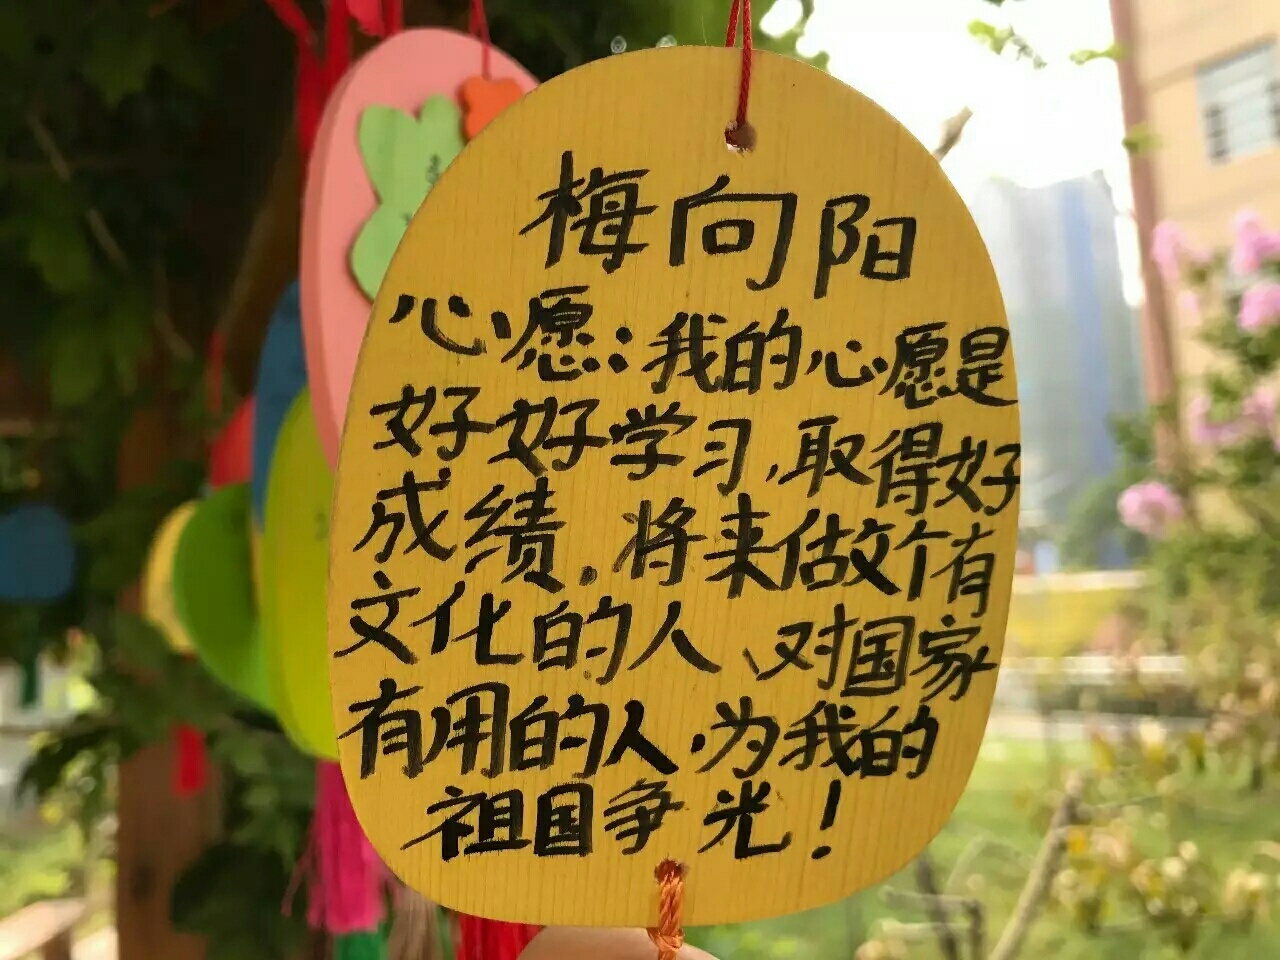 梅向阳
心愿:我的心愿是
好好学习,取得好
成绩,将来做个有
文化的人、对国家
有用的人,为我的
祖国争光!